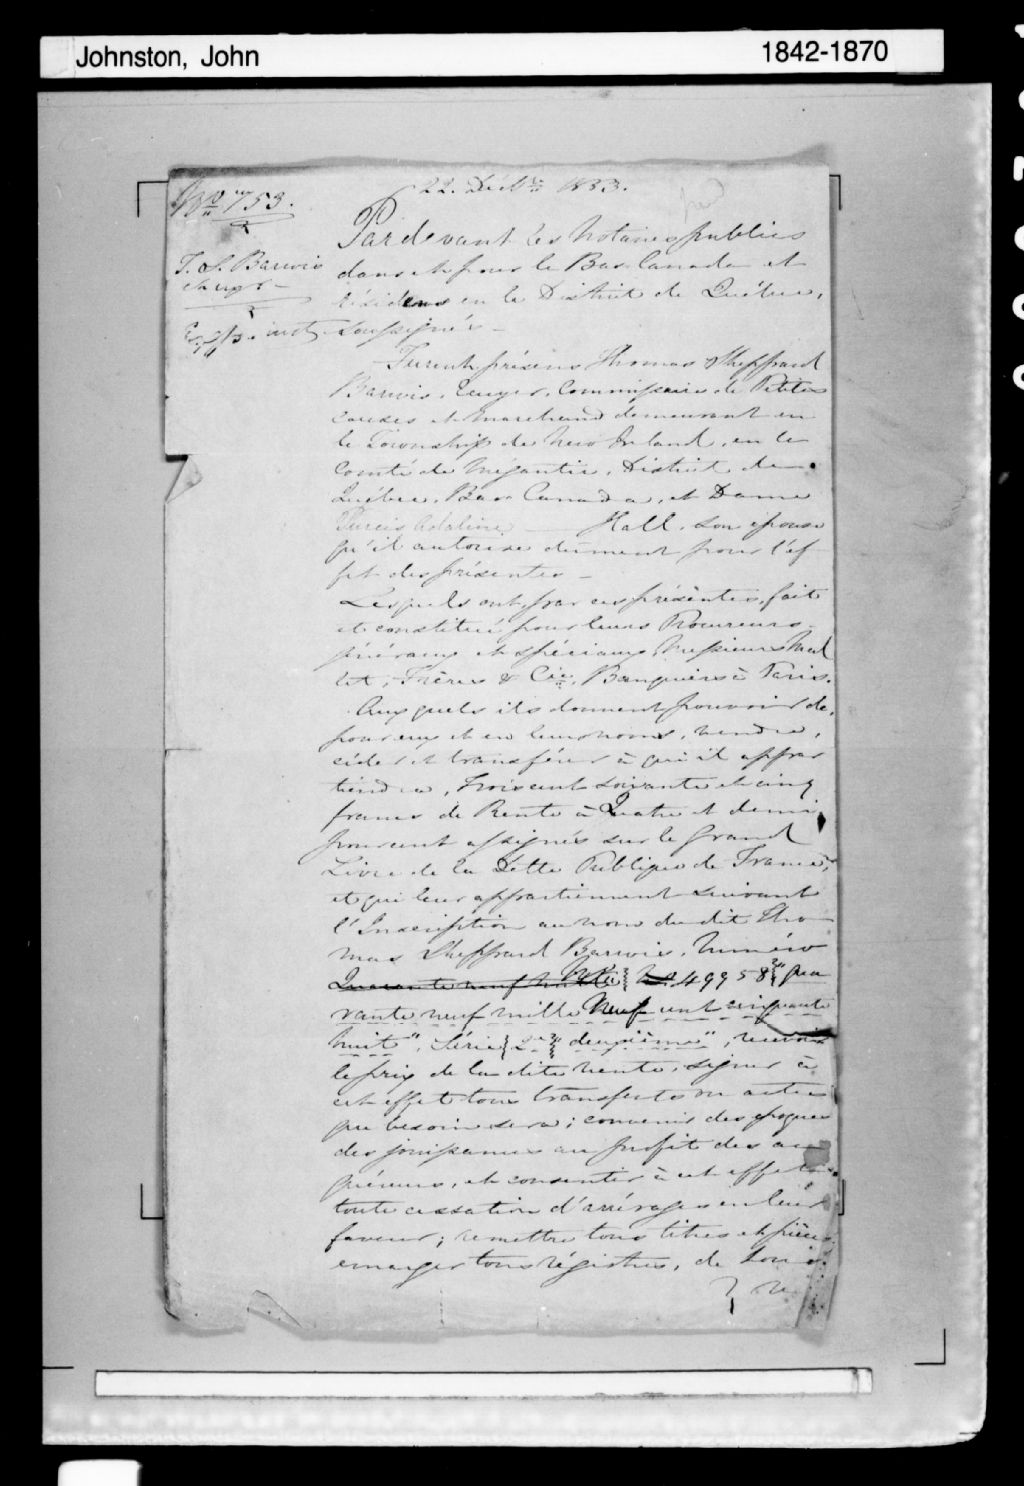 Johnston, John
1842-1870
22. Décbre 1853.
No. 753.
Pardevant les Notaires publics
T. S. Barwis
dans et pour le Bas Canada et
résidens en le District de Québec,
soussignés
Furent présens Thomas Sheppard
Barwis, Ecuyer, Commissaire de Petites
causes et Marchand demeurant en
le Township de New Inland, en le
Comté de Mégantic, District de
Québec, Bas Canada, et Dame
Adaline Hall, son épouse
qu'il autorise dûment pour l'ef-
fet des présentes
Lesquels ont par ces présentes, fait
et constitué pour leurs Procureurs
généraux et spéciaux, Messieurs Mal
let, Frères & Cie, Banquiers à Paris.
Auxquels ils donnent pouvoir de,
pour eux et en leurs noms, vendre,
céder et transférer à qui il appar
tiendra, trois cent soixante et cinq
francs de Rente à Quatre et demi
pour cent assignés sur le Grand
Livre de la Dette Publique de France,
et qui leur appartiennent suivant
l'Inscription au nom du dit Tho
mas Sheppard Barwis, Numéro
Quarante neuf mille No. 49958 "qua
rante neuf mille Neuf cent cinquante
huit", Série 2e "deuxième", recevoir
le prix de la dite vente, signer à
cet effet tous transferts ou actes
que besoin sera; convenir des époques
des jouissances au profit des ac
quéreurs, et consentir à cet effet
toute cessation d'arrérages en leur
faveur; remettre tous titres et pièces
emarger tous régistres, de tous